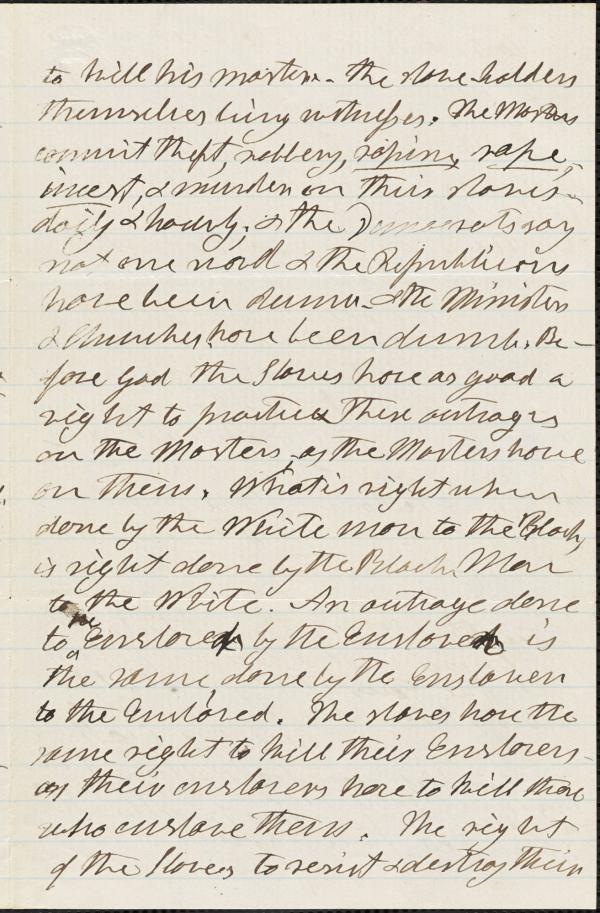 to kill his master - the slave-holders
themselves being witnesses. The Masters
commit theft, robbery, rapine, rape,
incest, & murder on their slaves -
daily & hourly; & the Democrats say
not one word & the Republicans
have been dumb - & the Ministers
& Churches have been dumb. Be-
fore God the Slaves have as good a
right to practice these outrages
on the Masters, as the Masters have
on them. What is right when
done by the White man to the Black,
is right done by the Black Man
to the White. An outrage done
to the Enslaved by the Enslaver is
the same, done by the Enslaver
to the Enslaved. The slaves have the
same right to kill their Enslavers -
as their enslavers have to kill those
who enslave them. The right
of the Slaves to resist & destroy their